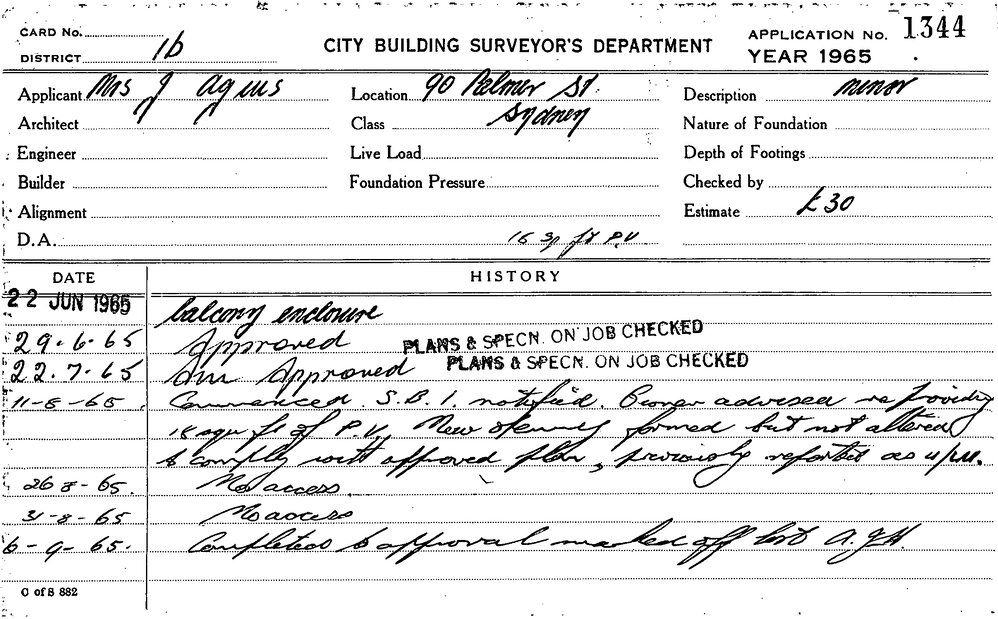 CARD No.
DISTRICT 1b
CITY BUILDING SURVEYOR'S DEPARTMENT
APPLICATION No. 1344
YEAR 1965
Applicant Mrs J Agius Location 90 Palmer St. Description minor
Architect Class Sydney Nature of Foundation
Engineer Live Load Depth of Footings
Builder Foundation Pressure Checked by
Alignment Estimate £30
D.A. P.V
DATE HISTORY
22 JUN 1965 balcony enclosure
29.6.65 Approved PLANS & SPECN. ON JOB CHECKED
22.7.65 Approved PLANS & SPECN. ON JOB CHECKED
11-8-65. Commenced. S.B.I. notified. Owner advised re providing
18 squ ft of P.V. New formed but not altered
to comply with approved plan, previously reported as
26 8-65. No access.
31-8-65 No access
6-9-65. Completed to approval marked off list A.J.H.
C of S 882